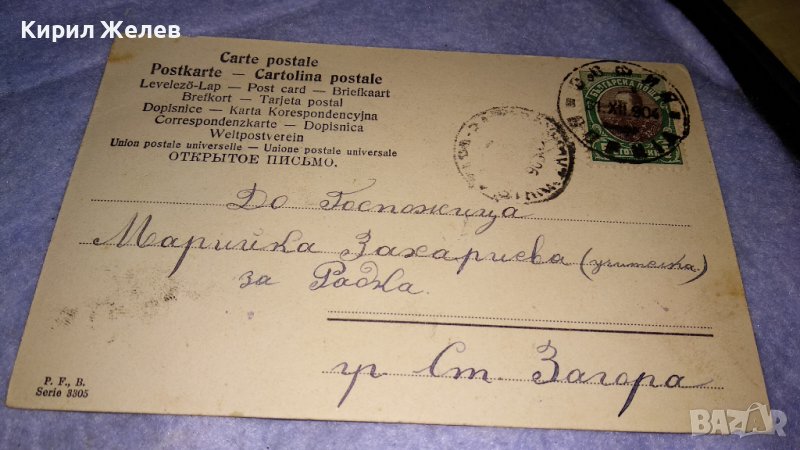 Кирил Желев
Carte postale
Postkarte — Cartolina postale
Levelező-Lap — Post card — Briefkaart
Brefkort — Tarjeta postal
Dopisnice — Karta Korespondencyjna
Correspondenzkarte — Dopisnica
Weltpostverein
Union postale universelle — Unione postale universale
ОТКРЫТОЕ ПИСЬМО.
XII 904
До Госпожица
Марийка Захариева (учителка)
за Радка.
гр. Ст. Загора
P. F., B.
Serie 3305
BAZAR